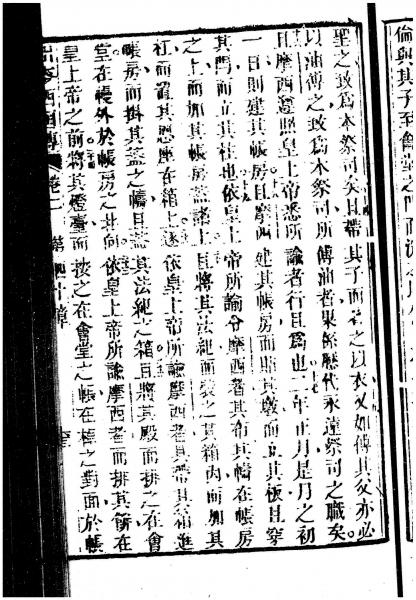 倫與其子到會堂之門而洗
聖之致為本祭司矣且帶其子而若之以衣又如傅其父亦必
以油傅之致為本祭司所傅油者果係歷代永遠祭司之職矣
且摩西遵照皇上帝悉所諭者行且為也十七二年正月是月之初
一日則建其帳房且摩西建其帳房而貼其墩而立其板且穿
其閂而立其柱也依皇上帝所諭分摩西者其布其幬在帳房
之上而加其帳房蓋諸上且將其法紀而裝之其箱內而加其
杠而置其恩座在箱上遂依皇上帝所諭摩西者其帶且箱進
帳房而掛其蓋之幬且蓋其法紀之箱且將其殿而排之在會
堂在帳外於帳房之北向依皇上帝所諭摩西者而排其餅在
皇上帝之前將其燈臺而按之在會堂之帳在棹之對面於帳
出麥西國傳 卷二 第四十章